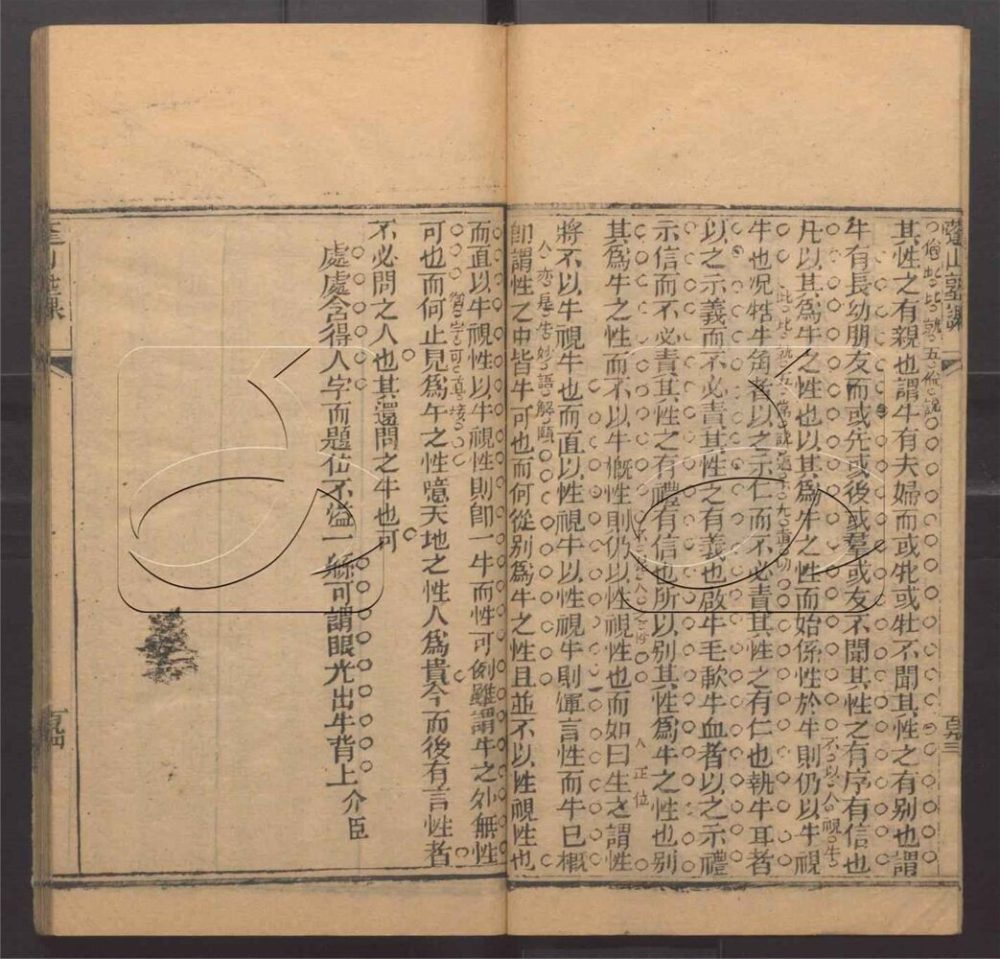 蓬山塾課
百九三
其性之有親也謂牛有夫婦而或牝或牡不聞其性之有別也謂
牛有長幼朋友而或先或後或羣或友不聞其性之有序有信也
凡以其為牛之性也以其為牛之性而始係性於牛則仍以牛視
牛也况牲牛角者以之示仁而不必責其性之有仁也執牛耳者
以之示義而不必責其性之有義也啟牛毛歃牛血者以之示禮
示信而不必責其性之有禮有信也所以別其性為牛之性也別
其為牛之性而不以牛概性則仍以性視性也而如曰生之謂性
正位
將不以牛視牛也而直以性視牛以性視牛則渾言性而牛已概
亦是生妙語解頤
即謂性之中皆牛可也而何從別為牛之性且並不以性視性也
而直以牛視性以牛視性則卽一牛而性可例雖謂牛之外無性
可也而何止見為牛之性噫天地之性人為貴今而後有言性者
不必問之人也其還問之牛也可
處處含得人字而題位不溢一絲可謂眼光出牛背上 介臣
百九四